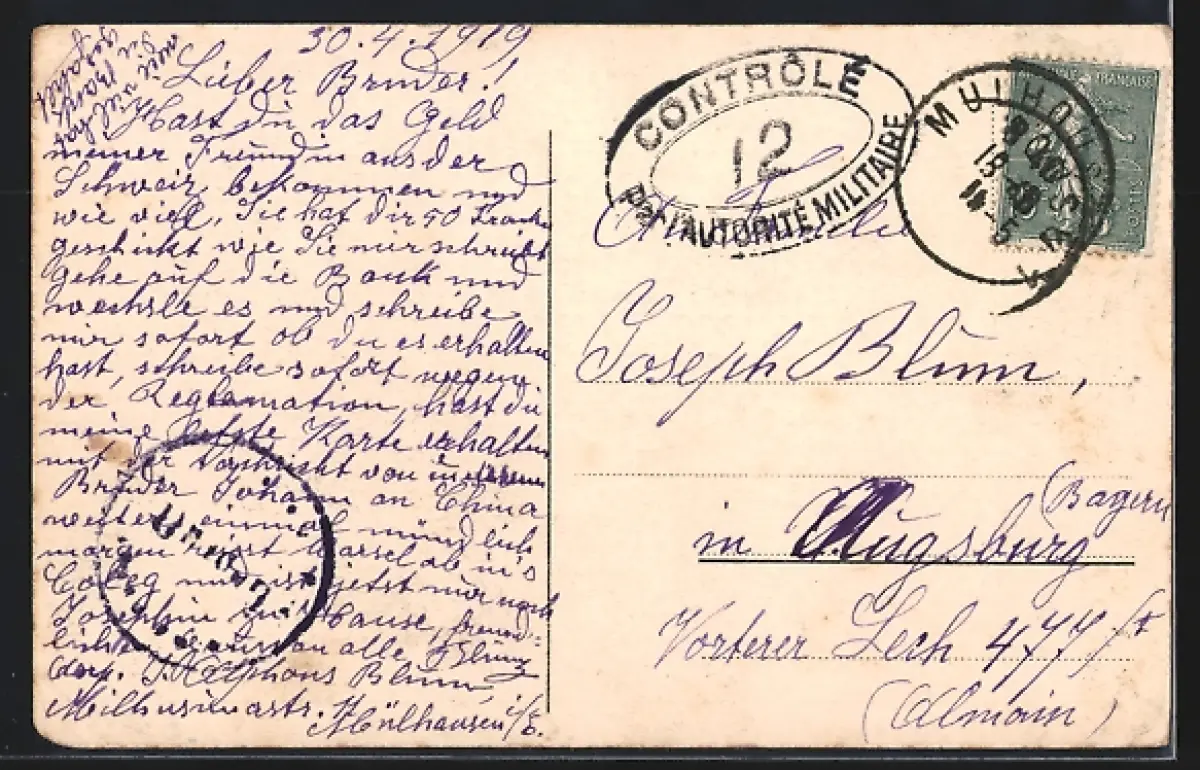 30.4.1919
Lieber Bruder!
Hast du das Geld
meiner Freundin aus der
Schweiz bekommen und
wie viel, Sie hat dir 50 Franken
geschickt wie Sie mir schreibt
gehe auf die Bank und
wechsle es und schreibe
mir sofort ob du es erhalten
hast, schreibe sofort wegen
der Reglamation, hast du
meine letzte Karte erhalten
mit der Nachricht von unserem
Bruder Johann an China
weiteres einmal mündlich
morgen reist Marsel ab in's
Coleg und ist jetzt nur noch
Josephin zu Hause, freund-
liche Gruss an alle
Alphons Blum
Mülhausen i/E.
CONTRÔLÉ
12
Par l'AUTORITÉ MILITAIRE
MULHOUSE
FRANÇAISE
POSTES
Joseph Blum,
in Augsburg
(Bayern
Vorterer Lech 477/I
(Almain)